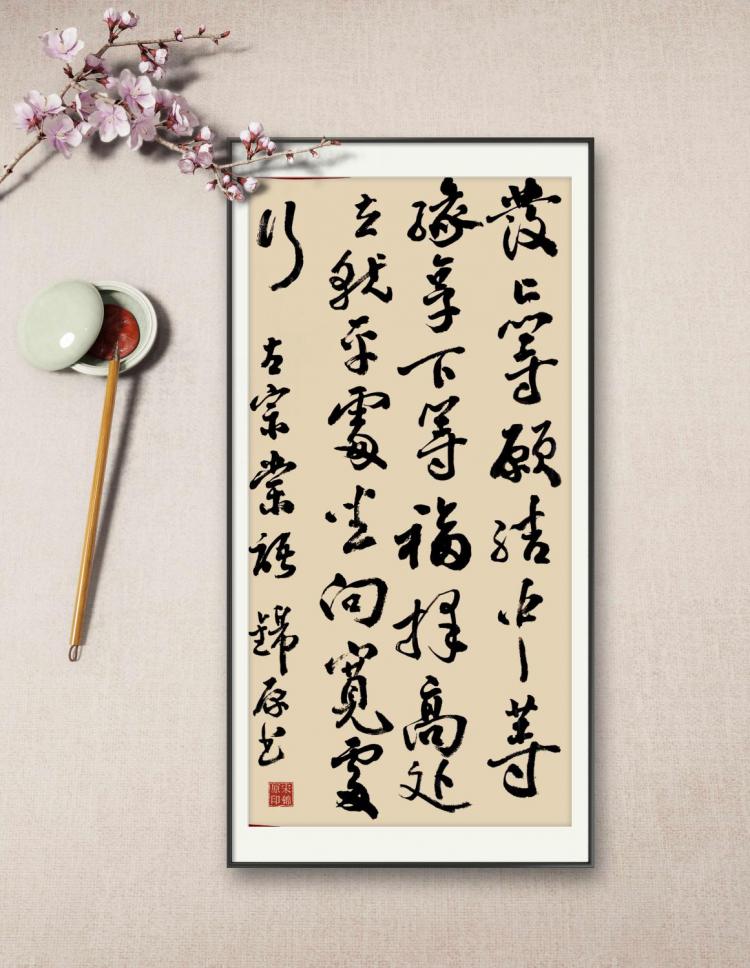 發上等願結中等
緣享下等福擇高处
立就平處坐向寬處
行 左宗棠語 錦原书
宋錦原印